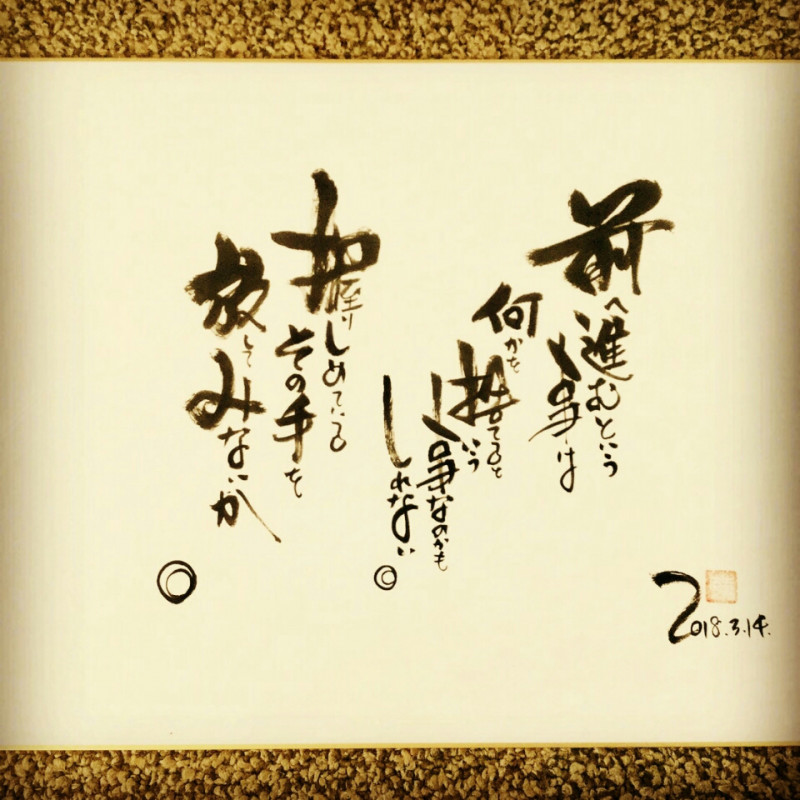 前へ進むという
事は
何かを
捨てるという
事なのかも
しれない。
握りしめている
その手を
放してみないか。
2018.3.14.